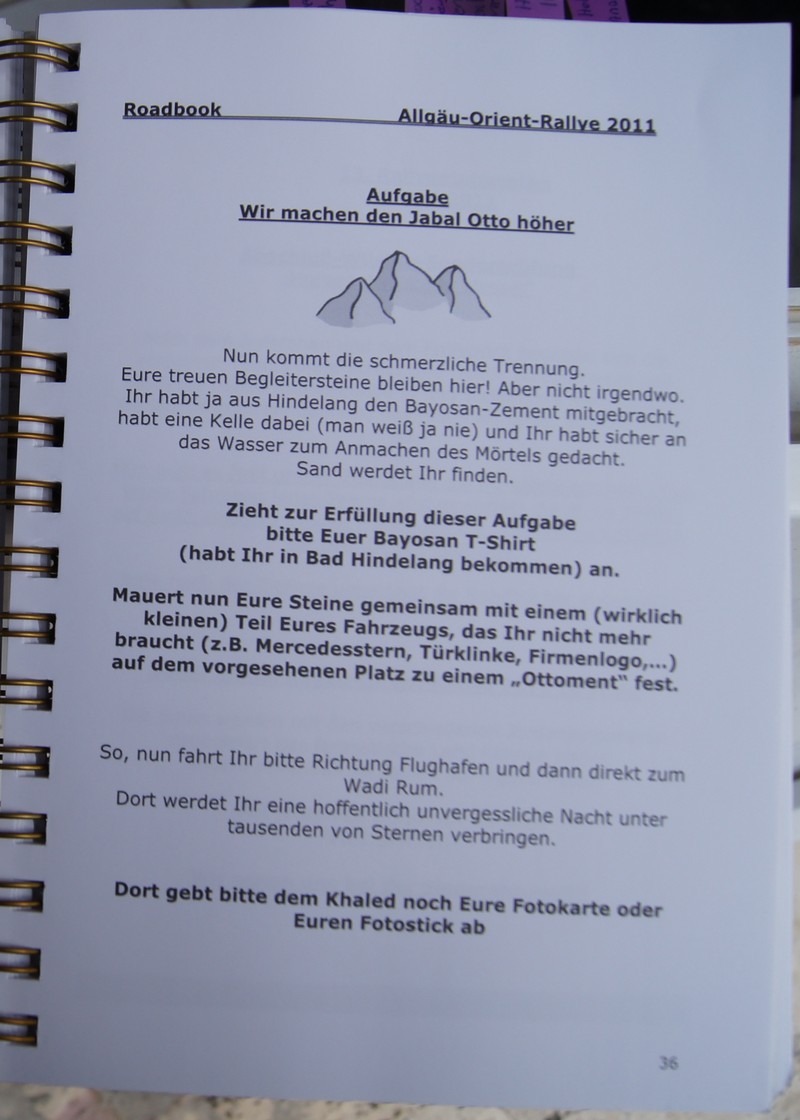 Roadbook Allgäu-Orient-Rallye 2011
Aufgabe
Wir machen den Jabal Otto höher
Nun kommt die schmerzliche Trennung.
Eure treuen Begleitersteine bleiben hier! Aber nicht irgendwo.
Ihr habt ja aus Hindelang den Bayosan-Zement mitgebracht,
habt eine Kelle dabei (man weiß ja nie) und Ihr habt sicher an
das Wasser zum Anmachen des Mörtels gedacht.
Sand werdet Ihr finden.
Zieht zur Erfüllung dieser Aufgabe
bitte Euer Bayosan T-Shirt
(habt Ihr in Bad Hindelang bekommen) an.
Mauert nun Eure Steine gemeinsam mit einem (wirklich
kleinen) Teil Eures Fahrzeugs, das Ihr nicht mehr
braucht (z.B. Mercedesstern, Türklinke, Firmenlogo,...)
auf dem vorgesehenen Platz zu einem „Ottoment“ fest.
So, nun fahrt Ihr bitte Richtung Flughafen und dann direkt zum
Wadi Rum.
Dort werdet Ihr eine hoffentlich unvergessliche Nacht unter
tausenden von Sternen verbringen.
Dort gebt bitte dem Khaled noch Eure Fotokarte oder
Euren Fotostick ab
36